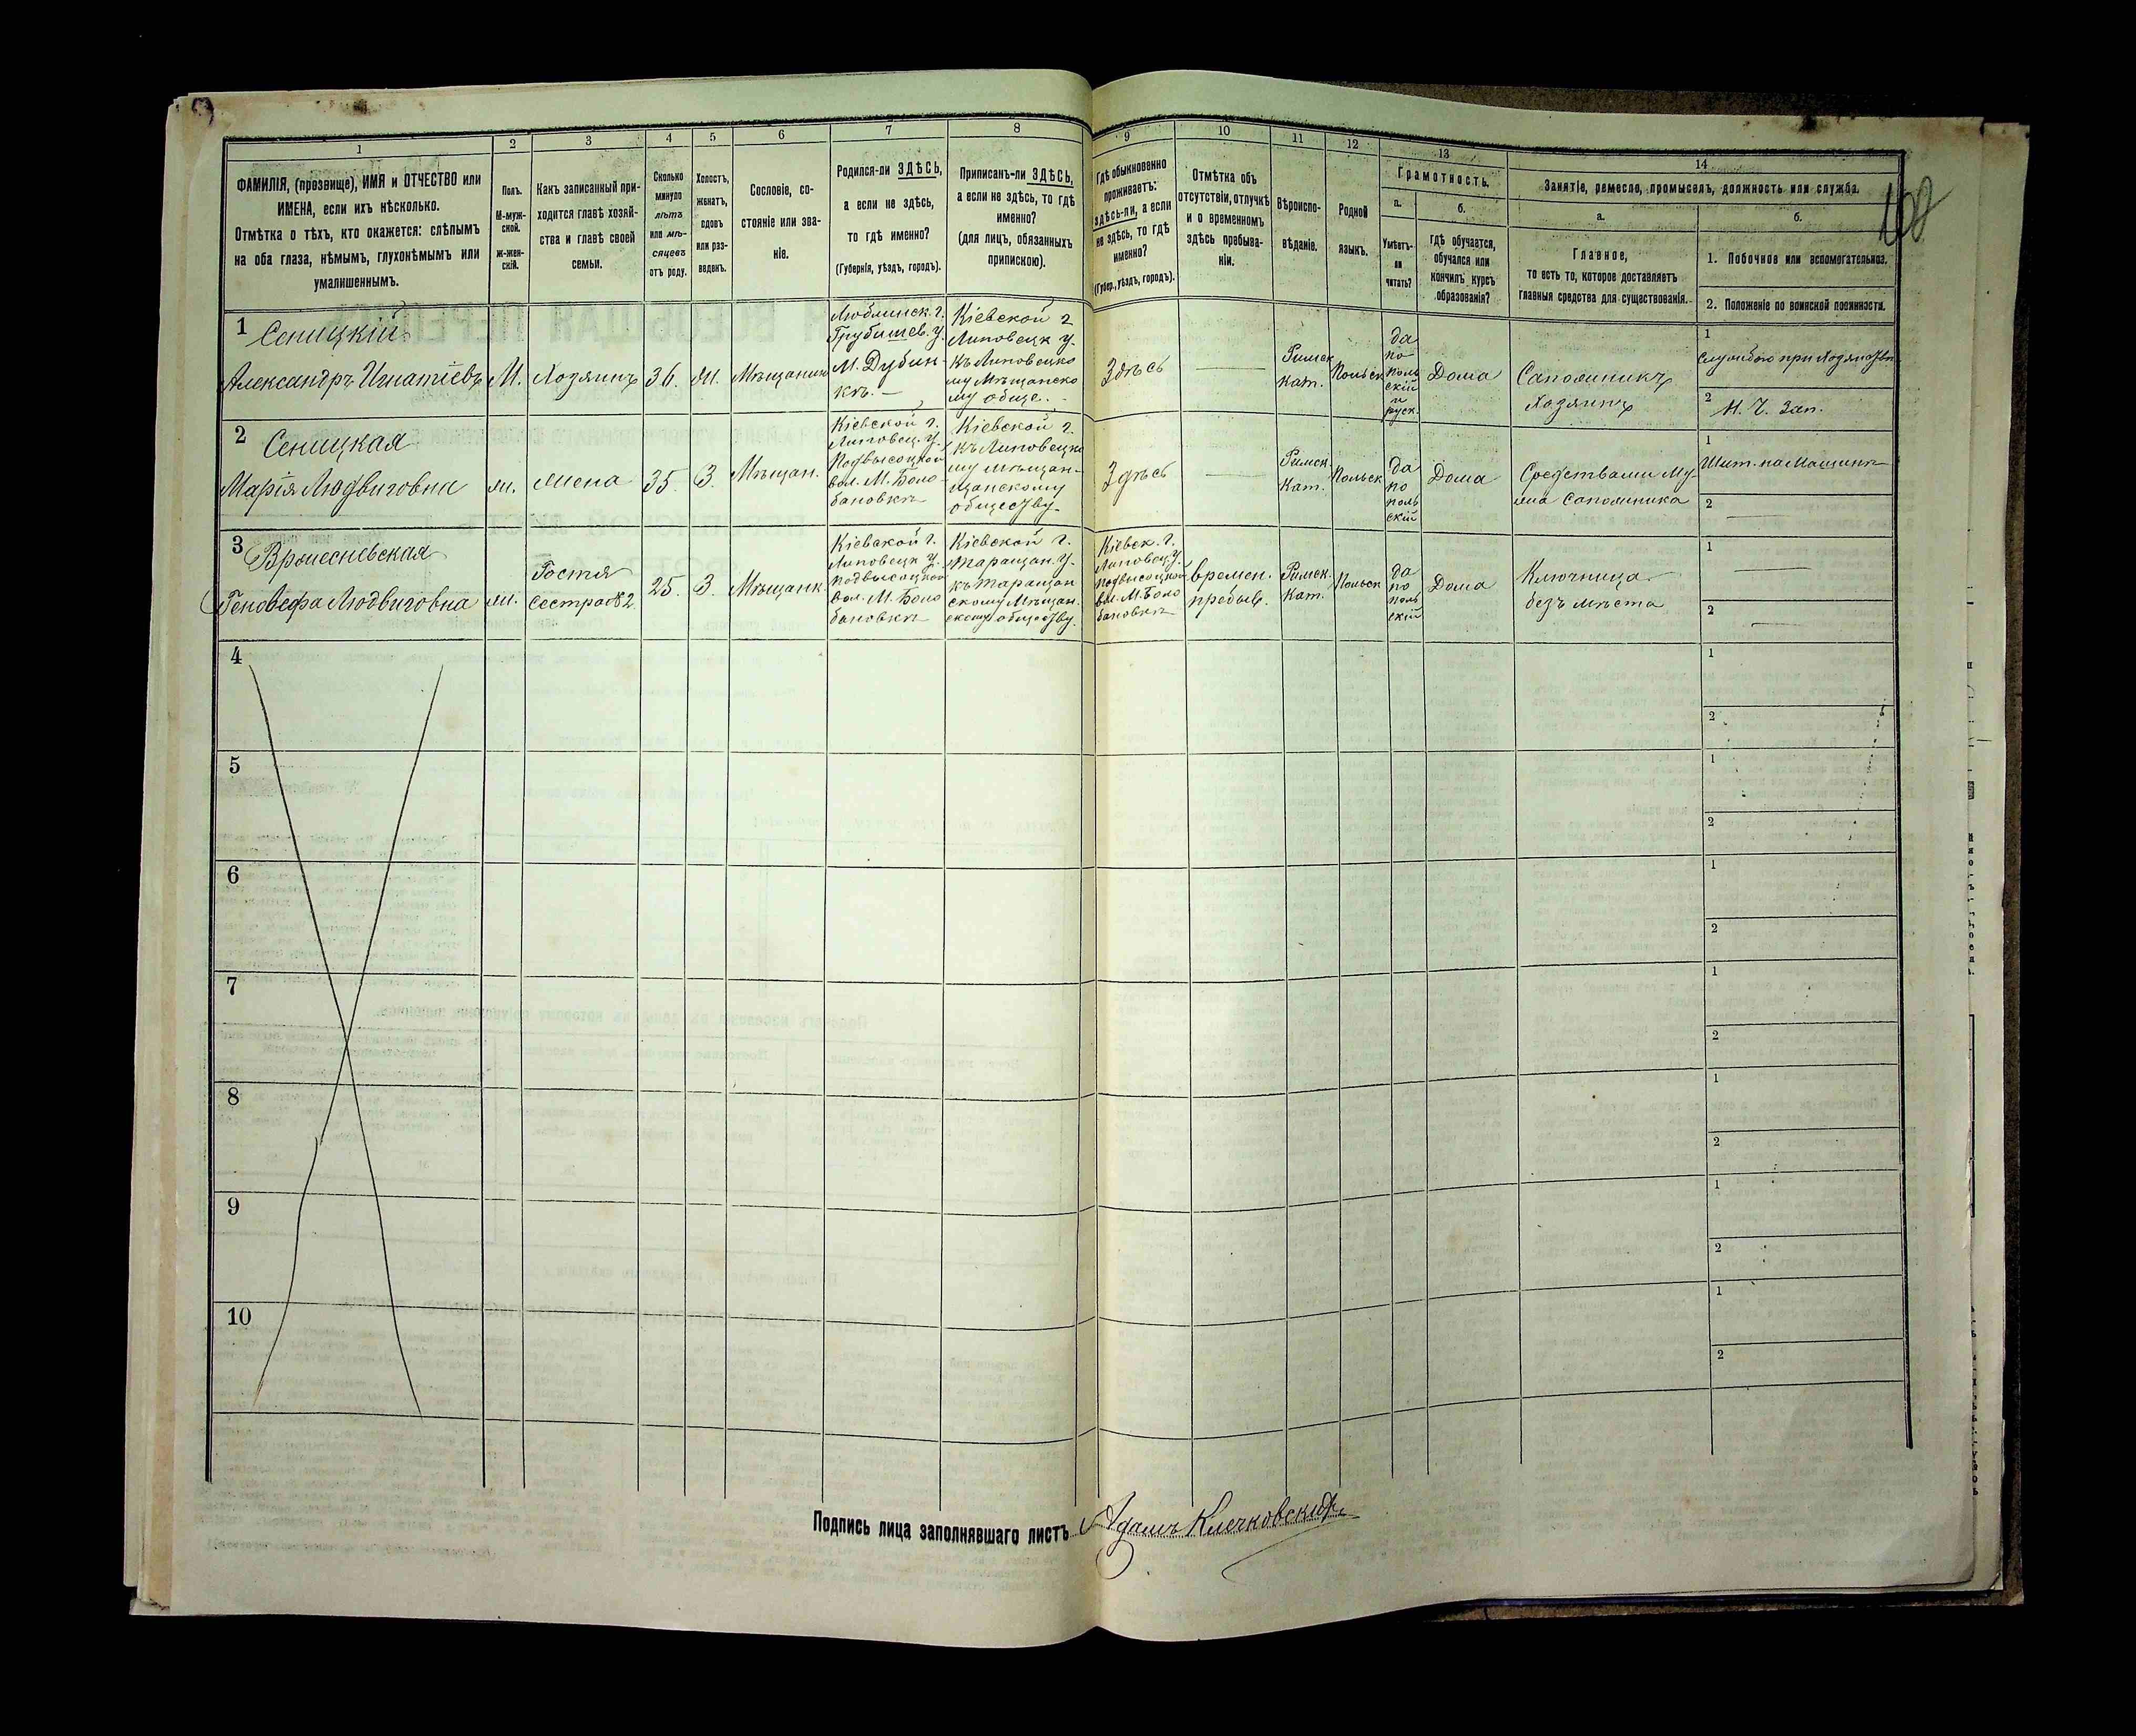 1
2
3
4
5
6
7
8
9
10
11
12
13
14
ФАМИЛІЯ, (прозвище), ИМЯ и ОТЧЕСТВО или
ИМЕНА, если ихъ нѣсколько.
Отмѣтка о тѣхъ, кто окажется: слѣпымъ
на оба глаза, нѣмымъ, глухонѣмымъ или
умалишеннымъ.
Полъ.
М-муж-
ской.
ж-жен-
скій.
Какъ записанный при-
ходится главѣ хозяй-
ства и главѣ своей
семьи.
Сколько
минуло
лѣтъ
или мѣ-
сяцевъ
отъ роду.
Холостъ,
женатъ,
вдовъ
или раз-
веденъ.
Сословіе, со-
стояніе или зва-
ніе.
Родился-ли ЗДѢСЬ,
а если не здѣсь,
то гдѣ именно?
(Губернія, уѣздъ, городъ).
Приписанъ-ли ЗДѢСЬ,
а если не здѣсь, то гдѣ
именно?
(для лицъ, обязанныхъ
припискою).
Гдѣ обыкновенно
проживаетъ:
здѣсь-ли, а если
не здѣсь, то гдѣ
именно?
(Губер., уѣздъ, городъ).
Отмѣтка объ
отсутствіи, отлучкѣ
и о временномъ
здѣсь пребыва-
ніи.
Вѣроиспо-
вѣданіе.
Родной
языкъ.
Грамотность.
а.
Умѣетъ-
ли
читать?
б.
гдѣ обучается,
обучался или
кончилъ курсъ
образованія?
Занятіе, ремесло, промыселъ, должность или служба.
а.
Главное,
то есть то, которое доставляетъ
главныя средства для существованія.
б.
1. Побочное или вспомогательное.
2. Положеніе по воинской повинности.
168
1
Сеницкій
Александръ Игнатіевъ
М.
Хозяинъ
36.
Ж.
Мѣщанинъ
Люблинск. г.
Грубишев. у.
М. Дубин-
кѣ.
Кіевской г
Липовецк у.
Къ Липовецко
му Мѣщанско
му обще.
Здѣсь
Римск
Кат.
Польск
да
по
поль
скій
и
руск.
Дома
Сапожникъ
Хозяинъ
1
Службою при Хозяйствѣ
2
Н. Ч. Зап.
2
Сеницкая
Марія Людвиговна
ж.
Жена
35.
З.
Мѣщан.
Кіевской г.
Липовец. у.
Подвысоцкой
вол. М. Боло-
бановкѣ
Кіевской г.
Къ Липовецко
му мѣщан-
щанскому
обществу.
Здѣсь
Римск
Кат.
Польск
да
по
поль
скій
Дома
Средствами Му-
жа Сапожника
1
Шит. на Машинѣ
2
3
Вржесневская
Геновефа Людвиговна
ж.
Гостя
Сестра № 2
25.
З.
Мѣщанк.
Кіевской г.
Липовецк у.
Подвысоцкой
вол. М. Боло
бановкѣ
Кіевской г.
Таращан. у.
къ Таращан
скому Мѣщан.
скому обществу.
Кіевск. г.
Липовец. у.
Подвысоцкой
вол. М. Боло
бановкѣ
времен.
пребыв.
Римск.
Кат.
Польск
да
по
поль
скій
Дома
Ключница
безъ мѣста
1
2
4
1
2
5
1
2
6
1
2
7
1
2
8
1
2
9
1
2
10
1
2
Подпись лица заполнявшаго листъ Адамъ Клечковскій